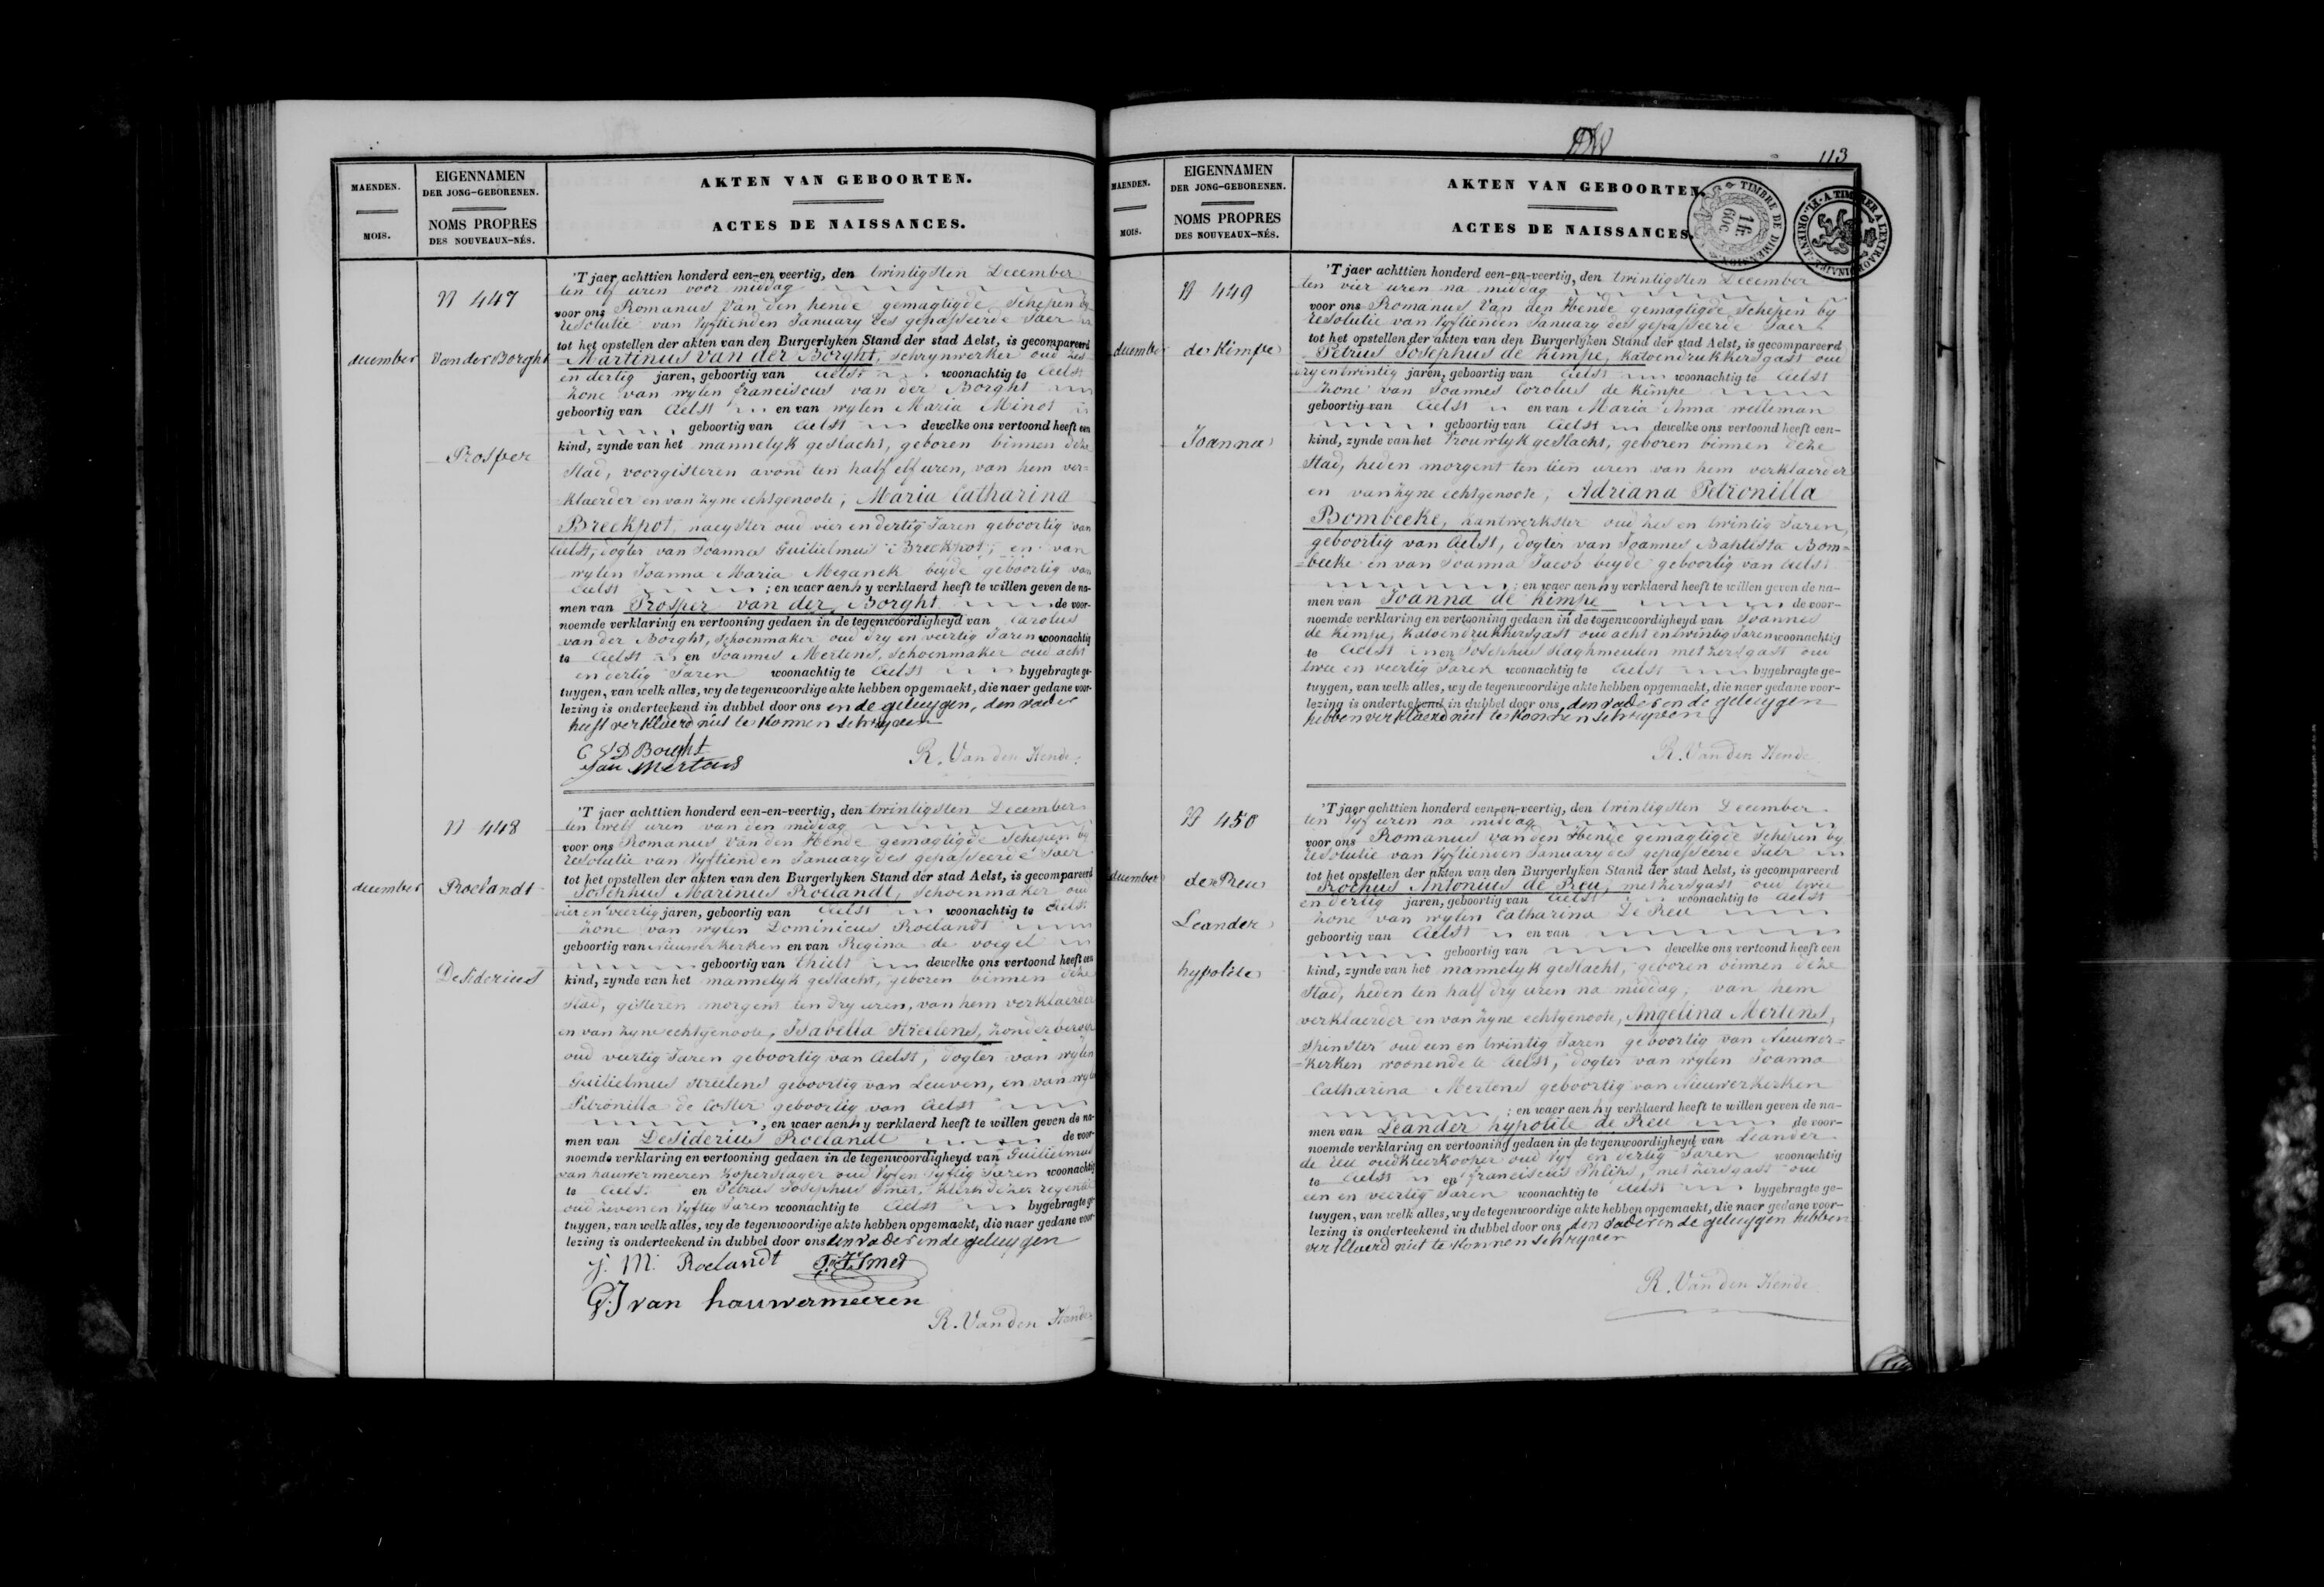 MAENDEN.
MOIS.
EIGENNAMEN
DER JONG-GEBORENEN.
NOMS PROPRES
DES NOUVEAUX-NÉS.
AKTEN VAN GEBOORTEN.
ACTES DE NAISSANCES.
N 447
december
Van der Borght
Prosper
'T jaer achttien honderd een-en-veertig, den twintigsten December
ten elf uren voor middag
voor ons Romanus Van den hende gemagtigde Schepen by
resolutie van vyftienden January des gepasseerde Jaer
tot het opstellen der akten van den Burgerlyken Stand der stad Aelst, is gecompareerd
Martinus van der Borght, schrynwerker oud zes
en dertig jaren, geboortig van Aelst woonachtig te Aelst
zone van wylen franciscus van der Borght
geboortig van Aelst en van wylen Maria Minot
geboortig van Aelst dewelke ons vertoond heeft een
kind, zynde van het mannelyk geslacht, geboren binnen deze
Stad, voorgisteren avond ten half elf uren, van hem ver=
klaerder en van zyne echtgenoote, Maria Catharina
Breckpot, naeyster oud vier en dertig Jaren geboortig van
Aelst, dogter van Joannes Guilielmus Breckpot, en van
wylen Joanna Maria Meganck beyde geboortig van
Aelst ; en waer aen hy verklaerd heeft te willen geven de na-
men van Prosper van der Borght de voor-
noemde verklaring en vertooning gedaen in de tegenwoordigheyd van Carolus
van der Borght, Schoenmaker oud dry en veertig Jaren woonachtig
te Aelst en Joannes Mertens, Schoenmaker oud acht
en dertig Jaren woonachtig te Aelst bygebragte ge-
tuygen, van welk alles, wy de tegenwoordige akte hebben opgemaekt, die naer gedane voor-
lezing is onderteekend in dubbel door ons en de getuygen, den vader
heeft verklaerd niet te konnen schryven
C V D Borght
Jan Mertens
R. Van den Hende
N 448
december
Roelandt
Desiderius
'T jaer achttien honderd een-en-veertig, den twintigsten December
ten twelf uren van den middag
voor ons Romanus Van den Hende gemagtigde Schepen by
resolutie van vyftienden January des gepasseerde Jaer
tot het opstellen der akten van den Burgerlyken Stand der stad Aelst, is gecompareerd
Josephus Marinus Roelandt, Schoenmaker oud
vier en veertig jaren, geboortig van Aelst woonachtig te Aelst
zone van wylen Dominicus Roelandt
geboortig van Nieuwerkerken en van Regina de voegel
geboortig van thielt dewelke ons vertoond heeft een
kind, zynde van het mannelyk geslacht, geboren binnen deze
Stad, gisteren morgent ten dry uren, van hem verklaerder
en van zyne echtgenoote, Isabella Streelens, zonder beroep
oud veertig Jaren geboortig van Aelst, dogter van wylen
Guilielmus Streelens geboortig van Leuven, en van wylen
Petronilla de Coster geboortig van Aelst
, en waer aen hy verklaerd heeft te willen geven de na-
men van Desiderius Roelandt de voor-
noemde verklaring en vertooning gedaen in de tegenwoordigheyd van Guilielmus
van hauwermeeren koperslager oud vyf en vyftig Jaren woonachtig
te Aelst en Petrus Josephus Smet, klerk dezer regentie
oud zeven en vyftig Jaren woonachtig te Aelst bygebragte ge-
tuygen, van welk alles, wy de tegenwoordige akte hebben opgemaekt, die naer gedane voor-
lezing is onderteekend in dubbel door ons den vader en de getuygen
J. M. Roelandt P. J. Smet
G. J van hauwermeeren
R. Van den Hende
113
MAENDEN.
MOIS.
EIGENNAMEN
DER JONG-GEBORENEN.
NOMS PROPRES
DES NOUVEAUX-NÉS.
AKTEN VAN GEBOORTEN.
ACTES DE NAISSANCES.
TIMBRE DE DIMENSION
60c
N 449
december
de Kimpe
Joanna
'T jaer achttien honderd een-en-veertig, den twintigsten December
ten vier uren na middag
voor ons Romanus Van den Hende gemagtigde Schepen by
resolutie van vyftienden January des gepasseerde Jaer
tot het opstellen der akten van den Burgerlyken Stand der stad Aelst, is gecompareerd
Petrus Josephus de Kimpe, katoendrukkersgast oud
dry en twintig jaren, geboortig van Aelst woonachtig te Aelst
zone van Joannes Carolus de Kimpe
geboortig van Aelst en van Maria Anna welleman
geboortig van Aelst dewelke ons vertoond heeft een
kind, zynde van het vrouwlyk geslacht, geboren binnen deze
Stad, heden morgent ten tien uren van hem verklaerder
en van zyne echtgenoote, Adriana Petronilla
Bombeeke, kantwerkster oud zes en twintig Jaren,
geboortig van Aelst, dogter van Joannes Baptista Bom=
=beeke en van Joanna Jacob beyde geboortig van Aelst
; en waer aen hy verklaerd heeft te willen geven de na-
men van Joanna de Kimpe de voor-
noemde verklaring en vertooning gedaen in de tegenwoordigheyd van Joannes
de Kimpe, katoendrukkersgast oud acht en twintig Jaren woonachtig
te Aelst en Josephus Haghmeulen metzersgast oud
twee en veertig Jaren woonachtig te Aelst bygebragte ge-
tuygen, van welk alles, wy de tegenwoordige akte hebben opgemaekt, die naer gedane voor-
lezing is onderteekend in dubbel door ons den vader en de getuygen
hebben verklaerd niet te konnen schryven
R. Van den Hende
N 450
december
de Preu
Leander
hypolite
'T jaer achttien honderd een-en-veertig, den twintigsten December
ten vyf uren na middag
voor ons Romanus van den Hende gemagtigde Schepen by
resolutie van vyftienden January des gepasseerde Jaer
tot het opstellen der akten van den Burgerlyken Stand der stad Aelst, is gecompareerd
Rochus Antonius de Preu, metzersgast oud twee
en dertig jaren, geboortig van Aelst woonachtig te Aelst
zone van wylen Catharina De Preu
geboortig van Aelst en van
geboortig van dewelke ons vertoond heeft een
kind, zynde van het mannelyk geslacht, geboren binnen deze
Stad, heden ten half dry uren na middag, van hem
verklaerder en van zyne echtgenoote, Angelina Mertens,
spinster oud een en twintig Jaren geboortig van Nieuwer=
=kerken woonende te Aelst, dogter van wylen Joanna
Catharina Mertens geboortig van Nieuwerkerken
; en waer aen hy verklaerd heeft te willen geven de na-
men van Leander hypolite de Preu de voor-
noemde verklaring en vertooning gedaen in de tegenwoordigheyd van Leander
de oudkleerkooper oud vyf en dertig Jaren woonachtig
te Aelst en franciscus Philips, metzersgast oud
een en veertig Jaren woonachtig te Aelst bygebragte ge-
tuygen, van welk alles, wy de tegenwoordige akte hebben opgemaekt, die naer gedane voor-
lezing is onderteekend in dubbel door ons den vader en de getuygen hebben
verklaerd niet te konnen schryven
R. Van den Hende